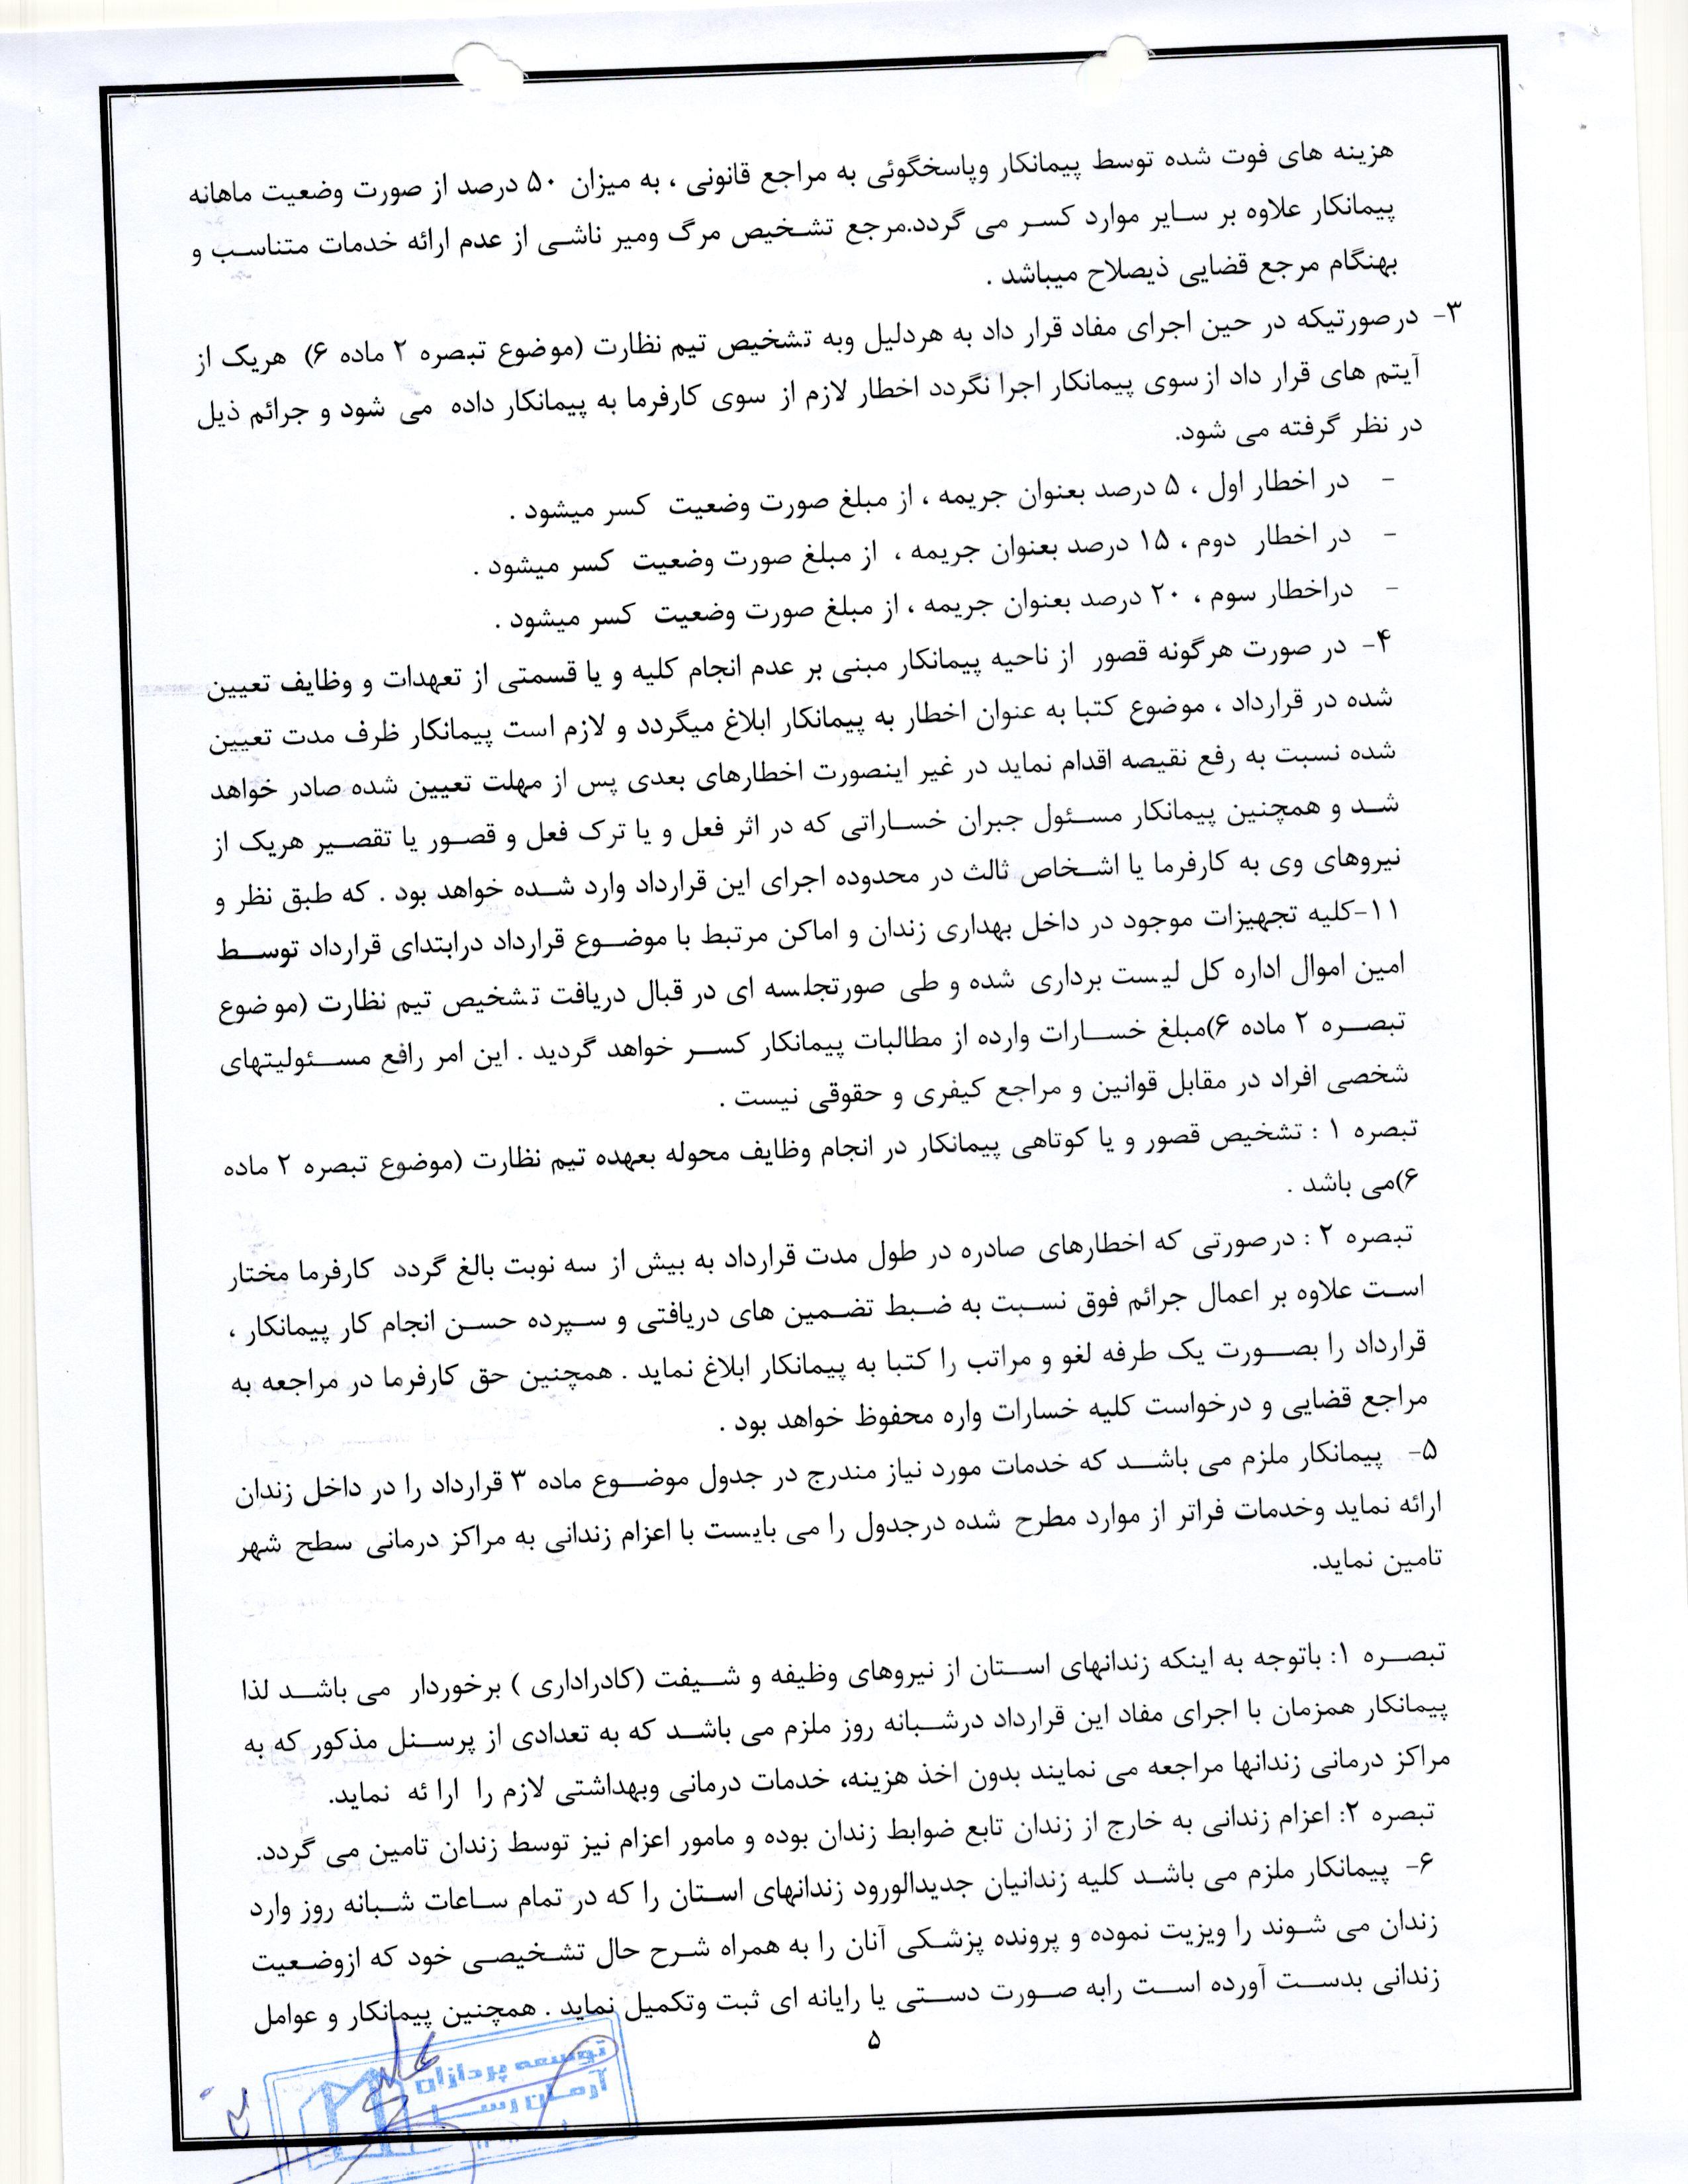 هزینه های فوت شده توسط پیمانکار وپاسخگوئی به مراجع قانونی ، به میزان ۵۰ درصد از صورت وضعیت ماهانه
پیمانکار علاوه بر سایر موارد کسر می گردد.مرجع تشخیص مرگ ومیر ناشی از عدم ارائه خدمات متناسب و
بهنگام مرجع قضایی ذیصلاح میباشد .
۳- درصورتیکه در حین اجرای مفاد قرار داد به هردلیل وبه تشخیص تیم نظارت (موضوع تبصره ۲ ماده ۶) هریک از
آیتم های قرار داد ازسوی پیمانکار اجرا نگردد اخطار لازم از سوی کارفرما به پیمانکار داده می شود و جرائم ذیل
در نظر گرفته می شود.
- در اخطار اول ، ۵ درصد بعنوان جریمه ، از مبلغ صورت وضعیت کسر میشود .
- در اخطار دوم ، ۱۵ درصد بعنوان جریمه ، از مبلغ صورت وضعیت کسر میشود .
- دراخطار سوم ، ۲۰ درصد بعنوان جریمه ، از مبلغ صورت وضعیت کسر میشود .
۴- در صورت هرگونه قصور از ناحیه پیمانکار مبنی بر عدم انجام کلیه و یا قسمتی از تعهدات و وظایف تعیین
شده در قرارداد ، موضوع کتبا به عنوان اخطار به پیمانکار ابلاغ میگردد و لازم است پیمانکار ظرف مدت تعیین
شده نسبت به رفع نقیصه اقدام نماید در غیر اینصورت اخطارهای بعدی پس از مهلت تعیین شده صادر خواهد
شد و همچنین پیمانکار مسئول جبران خساراتی که در اثر فعل و یا ترک فعل و قصور یا تقصیر هریک از
نیروهای وی به کارفرما یا اشخاص ثالث در محدوده اجرای این قرارداد وارد شده خواهد بود . که طبق نظر و
۱۱-کلیه تجهیزات موجود در داخل بهداری زندان و اماکن مرتبط با موضوع قرارداد درابتدای قرارداد توسط
امین اموال اداره کل لیست برداری شده و طی صورتجلسه ای در قبال دریافت تشخیص تیم نظارت (موضوع
تبصره ۲ ماده ۶)مبلغ خسارات وارده از مطالبات پیمانکار کسر خواهد گردید . این امر رافع مسئولیتهای
شخصی افراد در مقابل قوانین و مراجع کیفری و حقوقی نیست .
تبصره ۱ : تشخیص قصور و یا کوتاهی پیمانکار در انجام وظایف محوله بعهده تیم نظارت (موضوع تبصره ۲ ماده
۶)می باشد .
تبصره ۲ : درصورتی که اخطارهای صادره در طول مدت قرارداد به بیش از سه نوبت بالغ گردد کارفرما مختار
است علاوه بر اعمال جرائم فوق نسبت به ضبط تضمین های دریافتی و سپرده حسن انجام کار پیمانکار ،
قرارداد را بصورت یک طرفه لغو و مراتب را کتبا به پیمانکار ابلاغ نماید . همچنین حق کارفرما در مراجعه به
مراجع قضایی و درخواست کلیه خسارات واره محفوظ خواهد بود .
۵- پیمانکار ملزم می باشد که خدمات مورد نیاز مندرج در جدول موضوع ماده ۳ قرارداد را در داخل زندان
ارائه نماید وخدمات فراتر از موارد مطرح شده درجدول را می بایست با اعزام زندانی به مراکز درمانی سطح شهر
تامین نماید.
تبصره ۱: باتوجه به اینکه زندانهای استان از نیروهای وظیفه و شیفت (کادراداری ) برخوردار می باشد لذا
پیمانکار همزمان با اجرای مفاد این قرارداد درشبانه روز ملزم می باشد که به تعدادی از پرسنل مذکور که به
مراکز درمانی زندانها مراجعه می نمایند بدون اخذ هزینه، خدمات درمانی وبهداشتی لازم را ارا ئه نماید.
تبصره ۲: اعزام زندانی به خارج از زندان تابع ضوابط زندان بوده و مامور اعزام نیز توسط زندان تامین می گردد.
۶- پیمانکار ملزم می باشد کلیه زندانیان جدیدالورود زندانهای استان را که در تمام ساعات شبانه روز وارد
زندان می شوند را ویزیت نموده و پرونده پزشکی آنان را به همراه شرح حال تشخیصی خود که ازوضعیت
زندانی بدست آورده است رابه صورت دستی یا رایانه ای ثبت وتکمیل نماید . همچنین پیمانکار و عوامل
۵
توسعه پردازان
آرمان رسا